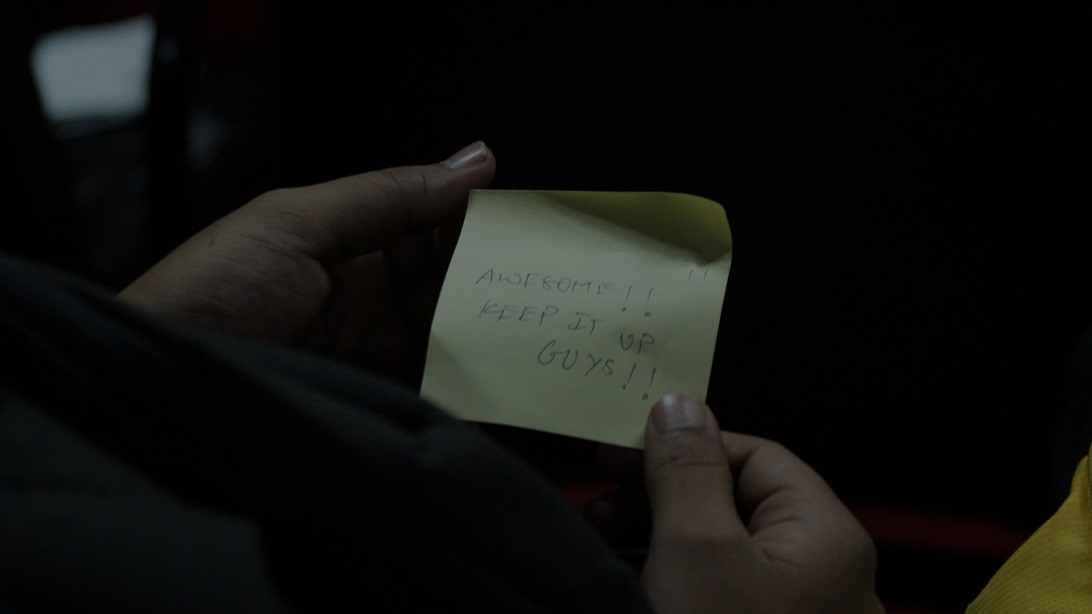 AWESOME!!
KEEP IT UP
GUYS!!